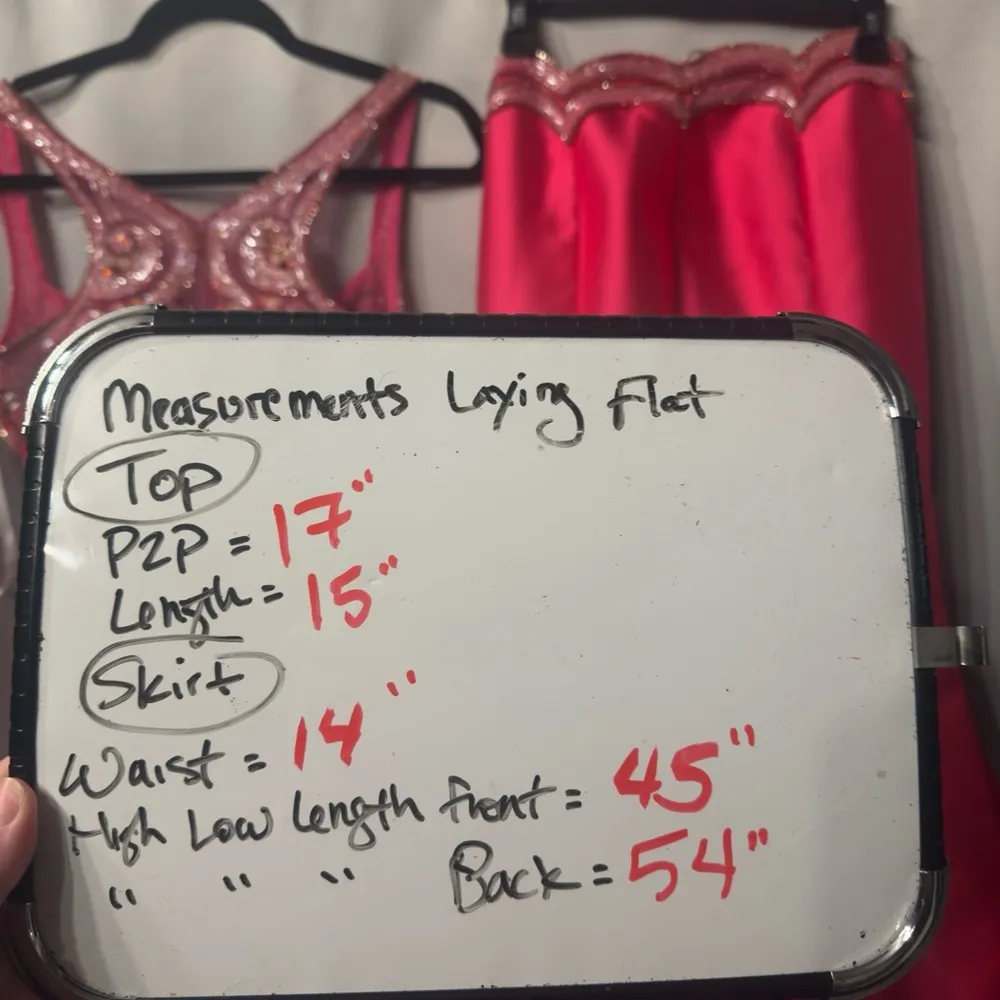 Measurements Laying Flat
Top
P2P = 17"
Length = 15"
Skirt
Waist = 14"
High Low Length front = 45"
" " " Back = 54"